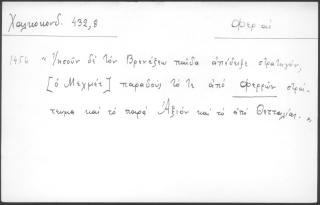 Χαλκοκονδ. 432,8
Φεραί
1456 " Ἰησοῦν δὲ τὸν Βρενέζεω παῖδα ἀπέδειξε στρατηγόν,
[ὁ Μεχμέτ] παραδοὺς τό τε ἀπὸ Φερρῶν στρά-
τευμα καὶ τὸ παρὰ Ἀξιὸν καὶ τὸ ἀπὸ Θετταλίας. "